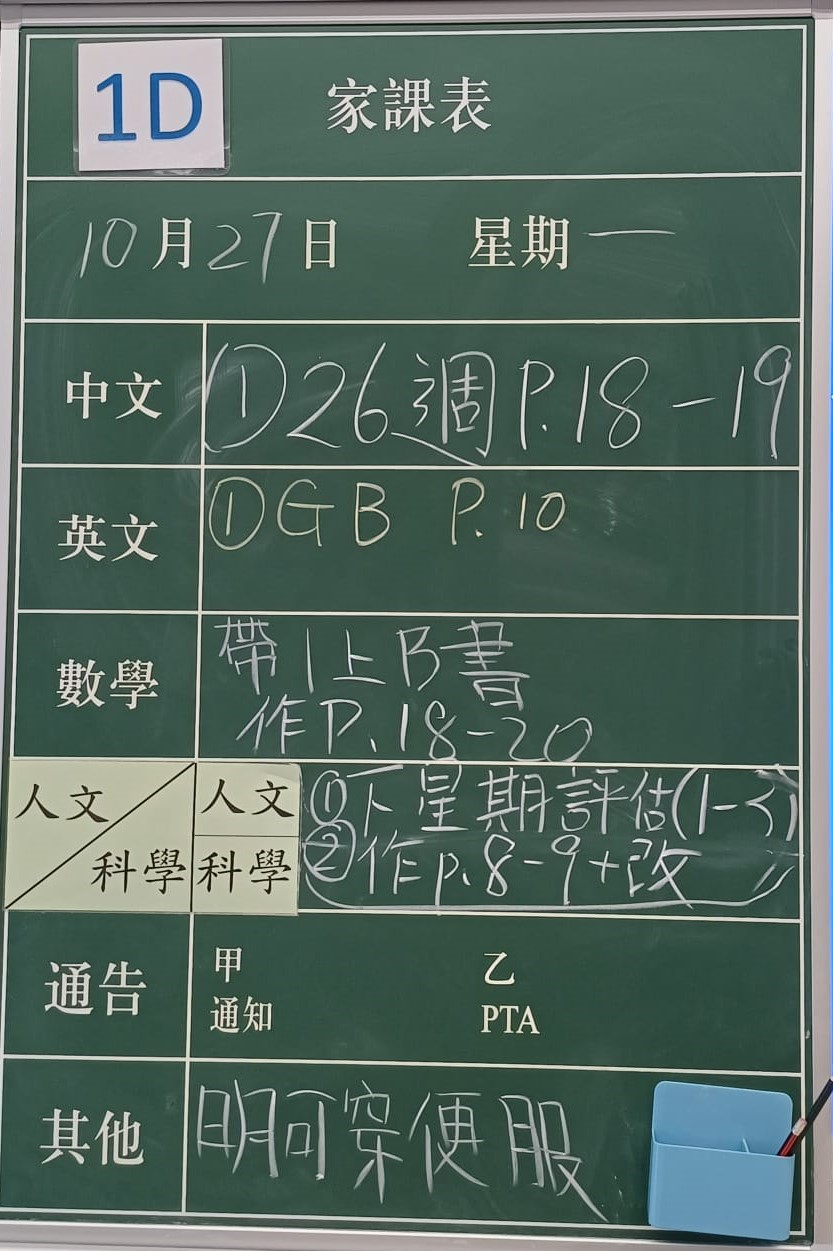 1D
家課表
10月27日 星期一
中文 ①26週 P.18-19
英文 ①GB P.10
數學 帶1上B書
作P.18-20
人文 人文 ①下星期評估(1-3)
科學 科學 ②作p.8-9+改
通告 甲 乙
通知 PTA
其他 明可穿便服